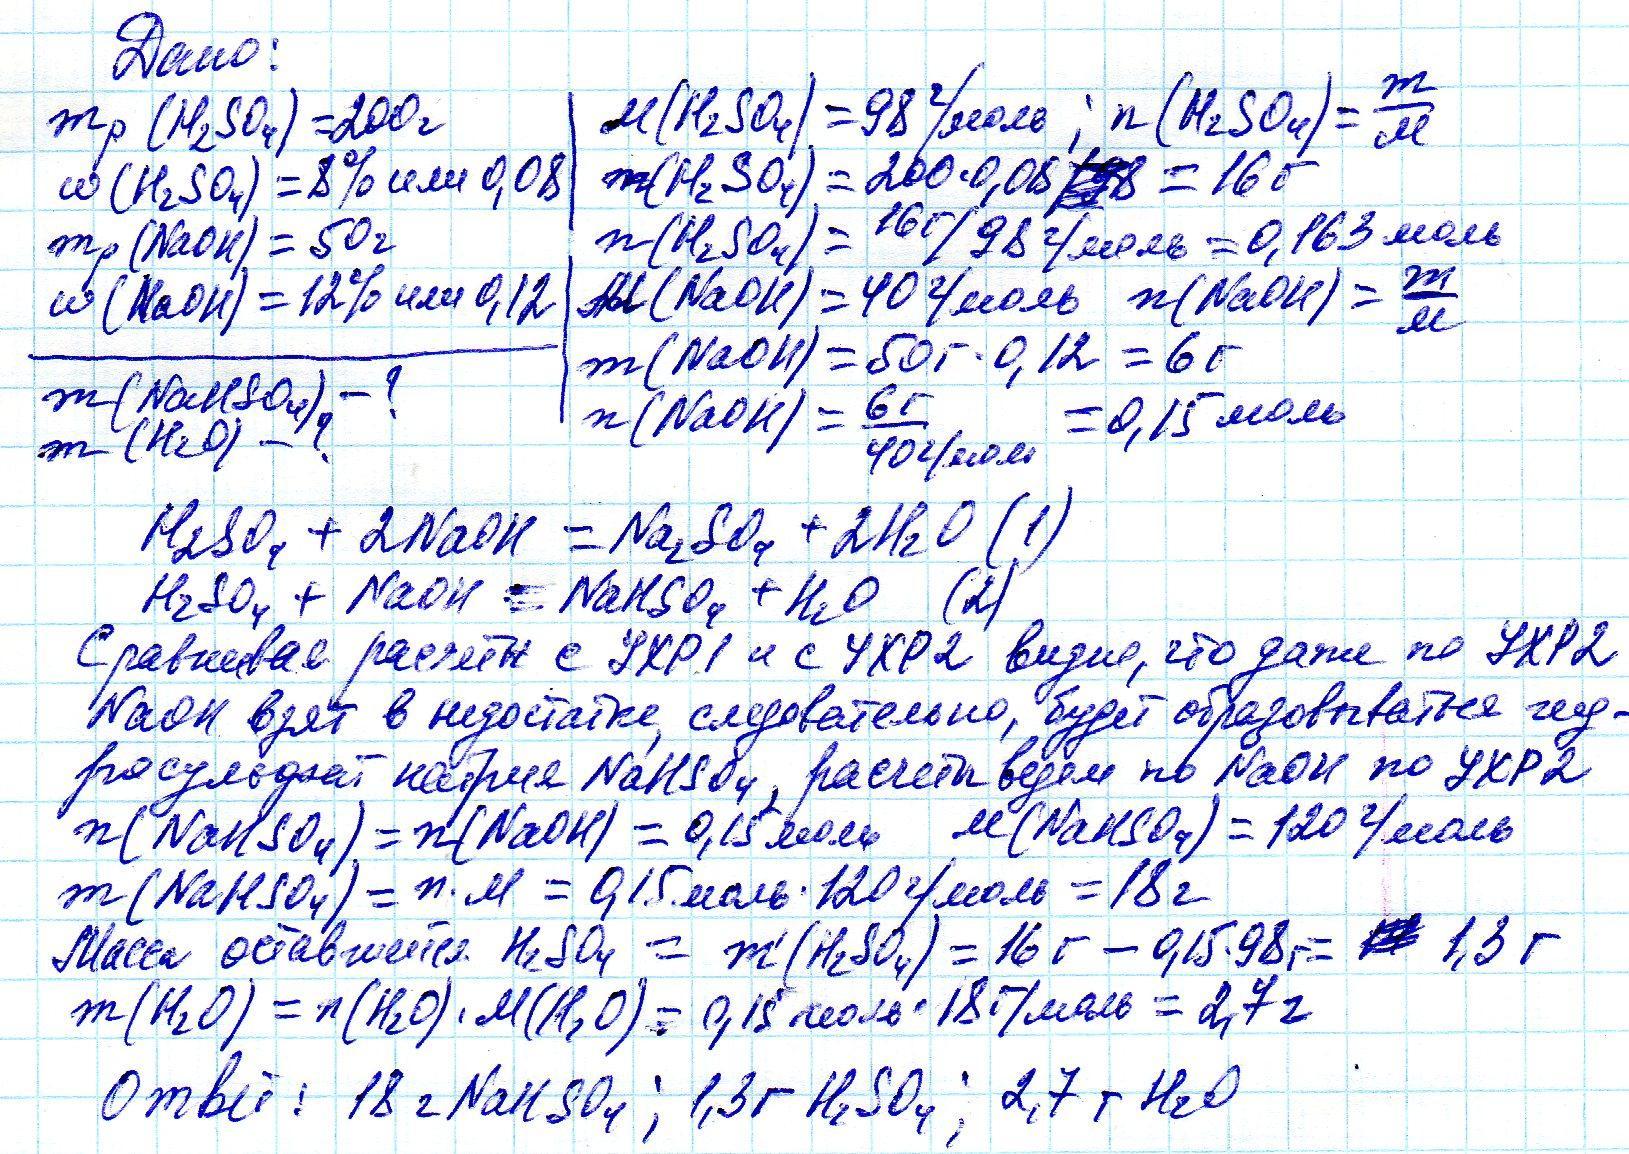 Дано:
mр (H₂SO₄) = 200г
w (H₂SO₄) = 8% или 0,08
mр (NaOH) = 50г
w (NaOH) = 12% или 0,12
m (NaHSO₄) - ?
m (H₂O) - ?
M(H₂SO₄) = 98 г/моль ; n(H₂SO₄) = m/M
m(H₂SO₄) = 200·0,08 = 16 г
n(H₂SO₄) = 16г/98 г/моль = 0,163 моль
M(NaOH) = 40 г/моль n(NaOH) = m/M
m(NaOH) = 50г·0,12 = 6г
n(NaOH) = 6г/40 г/мол = 0,15 моль
H₂SO₄ + 2NaOH = Na₂SO₄ + 2H₂O (1)
H₂SO₄ + NaOH = NaHSO₄ + H₂O (2)
Сравнивая расчеты с УХР1 и с УХР2 видно, что даже по УХР2
NaOH взят в недостатке, следовательно, будет образовываться гид-
росульфат натрия NaHSO₄, расчеты ведем по NaOH по УХР2
n(NaHSO₄) = n(NaOH) = 0,15 моль M(NaHSO₄) = 120 г/моль
m(NaHSO₄) = n·M = 0,15 моль·120 г/моль = 18г
Масса оставшейся H₂SO₄ = m'(H₂SO₄) = 16 г - 0,15·98г = 1,3 г
m(H₂O) = n(H₂O)·M(H₂O) = 0,15 моль·18г/моль = 2,7г
Ответ: 18 г NaHSO₄ ; 1,3г H₂SO₄ ; 2,7 г H₂O